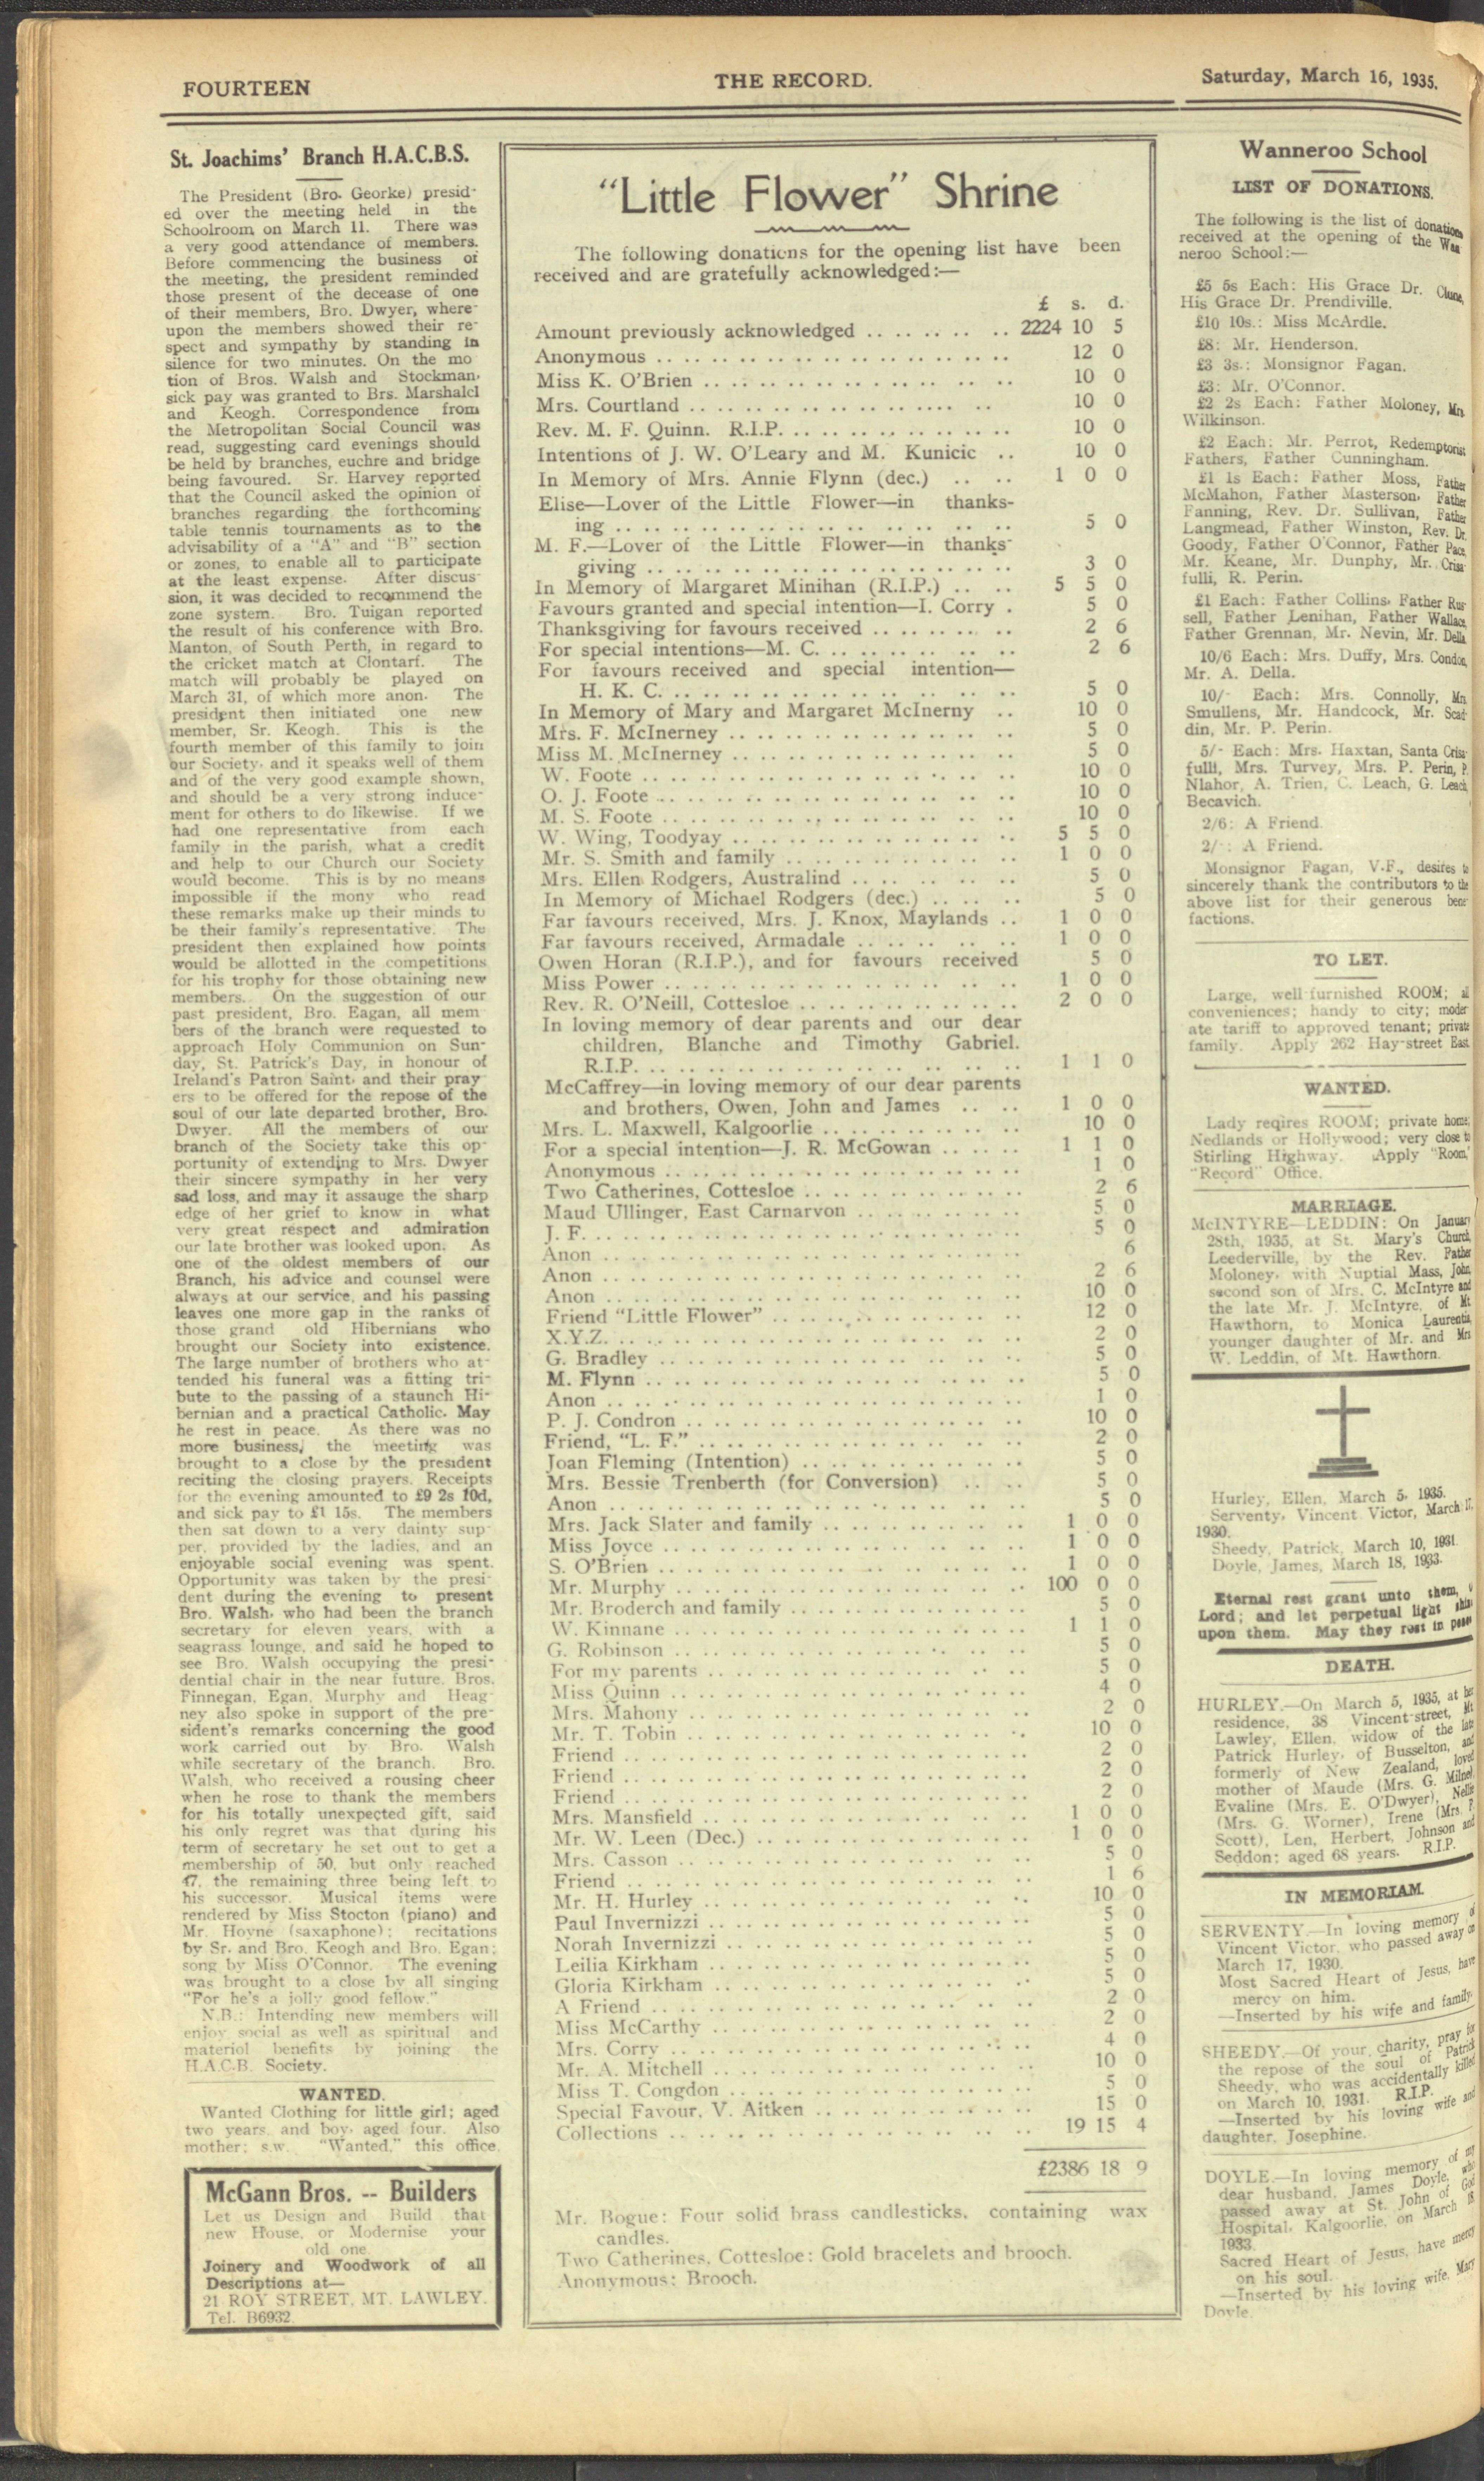 FOURTEEN
THE RECORD.
Saturday, March 16, 1935.
St. Joachims' Branch H.A.C.B.S.
The President (Bro. Georke) presid-
ed over the meeting held in the
Schoolroom on March 11. There was
a very good attendance of members.
Before commencing the business of
the meeting, the president reminded
those present of the decease of one
of their members, Bro. Dwyer, where-
upon the members showed their re-
spect and sympathy by standing in
silence for two minutes. On the mo
tion of Bros. Walsh and Stockman,
sick pay was granted to Brs. Marshalcl
and Keogh. Correspondence from
the Metropolitan Social Council was
read, suggesting card evenings should
be held by branches, euchre and bridge
being favoured. Sr. Harvey reported
that the Council asked the opinion of
branches regarding the forthcoming
table tennis tournaments as to the
advisability of a "A" and "B" section
or zones, to enable all to participate
at the least expense. After discus-
sion, it was decided to recommend the
zone system. Bro. Tuigan reported
the result of his conference with Bro.
Manton, of South Perth, in regard to
the cricket match at Clontarf. The
match will probably be played on
March 31, of which more anon. The
president then initiated one new
member, Sr. Keogh. This is the
fourth member of this family to join
our Society, and it speaks well of them
and of the very good example shown,
and should be a very strong induce-
ment for others to do likewise. If we
had one representative from each
family in the parish, what a credit
and help to our Church our Society
would become. This is by no means
impossible if the mony who read
these remarks make up their minds to
be their family's representative. The
president then explained how points
would be allotted in the competitions
for his trophy for those obtaining new
members. On the suggestion of our
past president, Bro. Eagan, all mem
bers of the branch were requested to
approach Holy Communion on Sun-
day, St. Patrick's Day, in honour of
Ireland's Patron Saint, and their pray
ers to be offered for the repose of the
soul of our late departed brother, Bro.
Dwyer. All the members of our
branch of the Society take this op-
portunity of extending to Mrs. Dwyer
their sincere sympathy in her very
sad loss, and may it assauge the sharp
edge of her grief to know in what
very great respect and admiration
our late brother was looked upon. As
one of the oldest members of our
Branch, his advice and counsel were
always at our service, and his passing
leaves one more gap in the ranks of
those grand old Hibernians who
brought our Society into existence.
The large number of brothers who at-
tended his funeral was a fitting tri-
bute to the passing of a staunch Hi-
bernian and a practical Catholic. May
he rest in peace. As there was no
more business, the meeting was
brought to a close by the president
reciting the closing prayers. Receipts
for the evening amounted to £9 2s 10d,
and sick pay to £1 15s. The members
then sat down to a very dainty sup-
per, provided by the ladies, and an
enjoyable social evening was spent.
Opportunity was taken by the presi-
dent during the evening to present
Bro. Walsh, who had been the branch
secretary for eleven years, with a
seagrass lounge, and said he hoped to
see Bro. Walsh occupying the presi-
dential chair in the near future. Bros.
Finnegan, Egan, Murphy and Heag-
ney also spoke in support of the pre-
sident's remarks concerning the good
work carried out by Bro. Walsh
while secretary of the branch. Bro.
Walsh, who received a rousing cheer
when he rose to thank the members
for his totally unexpected gift, said
his only regret was that during his
term of secretary he set out to get a
membership of 50, but only reached
47, the remaining three being left to
his successor. Musical items were
rendered by Miss Stocton (piano) and
Mr. Hoyne (saxaphone); recitations
by Sr. and Bro. Keogh and Bro. Egan;
song by Miss O'Connor. The evening
was brought to a close by all singing
"For he's a jolly good fellow."
N.B.: Intending new members will
enjoy social as well as spiritual and
materiol benefits by joining the
H.A.C.B. Society.
WANTED.
Wanted Clothing for little girl; aged
two years and boy, aged four. Also
mother; s.w. "Wanted," this office.
McGann Bros. -- Builders
Let us Design and Build that
new House, or Modernise your
old one.
Joinery and Woodwork of all
Descriptions at—
21 ROY STREET, MT. LAWLEY.
Tel. B6932.
"Little Flower" Shrine
The following donations for the opening list have been
received and are gratefully acknowledged:—
£ s. d.
Amount previously acknowledged .. .. .. .. .. 2224 10 5
Anonymous .. .. .. .. 12 0
Miss K. O'Brien .. .. .. .. 10 0
Mrs. Courtland .. .. .. .. 10 0
Rev. M. F. Quinn. R.I.P. .. .. .. .. 10 0
Intentions of J. W. O'Leary and M. Kunicic .. 10 0
In Memory of Mrs. Annie Flynn (dec.) .. .. 1 0 0
Elise—Lover of the Little Flower—in thanks-
ing .. .. .. .. 5 0
M. F.—Lover of the Little Flower—in thanks-
giving .. .. .. .. 3 0
In Memory of Margaret Minihan (R.I.P.) .. .. 5 5 0
Favours granted and special intention—I. Corry . 5 0
Thanksgiving for favours received .. .. .. .. 2 6
For special intentions—M. C. .. .. .. .. 2 6
For favours received and special intention—
H. K. C. .. .. .. .. 5 0
In Memory of Mary and Margaret McInerny .. 10 0
Mrs. F. McInerney .. .. .. .. 5 0
Miss M. McInerney .. .. .. .. 5 0
W. Foote .. .. .. .. 10 0
O. J. Foote .. .. .. .. 10 0
M. S. Foote .. .. .. .. 10 0
W. Wing, Toodyay .. .. .. .. 5 5 0
Mr. S. Smith and family .. .. .. .. 1 0 0
Mrs. Ellen Rodgers, Australind .. .. .. .. 5 0
In Memory of Michael Rodgers (dec.) .. .. .. 5 0
Far favours received, Mrs. J. Knox, Maylands .. 1 0 0
Far favours received, Armadale .. .. .. .. 1 0 0
Owen Horan (R.I.P.), and for favours received 5 0
Miss Power .. .. .. .. 1 0 0
Rev. R. O'Neill, Cottesloe .. .. .. .. 2 0 0
In loving memory of dear parents and our dear
children, Blanche and Timothy Gabriel.
R.I.P. .. .. .. .. 1 1 0
McCaffrey—in loving memory of our dear parents
and brothers, Owen, John and James .. .. 1 0 0
Mrs. L. Maxwell, Kalgoorlie .. .. .. .. 10 0
For a special intention—J. R. McGowan .. .. .. 1 1 0
Anonymous .. .. .. .. 1 0
Two Catherines, Cottesloe .. .. .. .. 2 6
Maud Ullinger, East Carnarvon .. .. .. .. 5 0
J. F. .. .. .. .. 5 0
Anon .. .. .. .. 6
Anon .. .. .. .. 2 6
Anon .. .. .. .. 10 0
Friend "Little Flower" .. .. .. .. 12 0
X.Y.Z. .. .. .. .. 2 0
G. Bradley .. .. .. .. 5 0
M. Flynn .. .. .. .. 5 0
Anon .. .. .. .. 1 0
P. J. Condron .. .. .. .. 10 0
Friend, "L. F." .. .. .. .. 2 0
Joan Fleming (Intention) .. .. .. .. 5 0
Mrs. Bessie Trenberth (for Conversion) .. .. 5 0
Anon .. .. .. .. 5 0
Mrs. Jack Slater and family .. .. .. .. 1 0 0
Miss Joyce .. .. .. .. 1 0 0
S. O'Brien .. .. .. .. 1 0 0
Mr. Murphy .. .. .. .. 100 0 0
Mr. Broderch and family .. .. .. .. 5 0
W. Kinnane .. .. .. .. 1 1 0
G. Robinson .. .. .. .. 5 0
For my parents .. .. .. .. 5 0
Miss Quinn .. .. .. .. 4 0
Mrs. Mahony .. .. .. .. 2 0
Mr. T. Tobin .. .. .. .. 10 0
Friend .. .. .. .. 2 0
Friend .. .. .. .. 2 0
Friend .. .. .. .. 2 0
Mrs. Mansfield .. .. .. .. 1 0 0
Mr. W. Leen (Dec.) .. .. .. .. 1 0 0
Mrs. Casson .. .. .. .. 5 0
Friend .. .. .. .. 1 6
Mr. H. Hurley .. .. .. .. 10 0
Paul Invernizzi .. .. .. .. 5 0
Norah Invernizzi .. .. .. .. 5 0
Leilia Kirkham .. .. .. .. 5 0
Gloria Kirkham .. .. .. .. 5 0
A Friend .. .. .. .. 2 0
Miss McCarthy .. .. .. .. 2 0
Mrs. Corry .. .. .. .. 4 0
Mr. A. Mitchell .. .. .. .. 10 0
Miss T. Congdon .. .. .. .. 5 0
Special Favour, V. Aitken .. .. .. .. 15 0
Collections .. .. .. .. 19 15 4
£2386 18 9
Mr. Bogue: Four solid brass candlesticks, containing wax
candles.
Two Catherines, Cottesloe: Gold bracelets and brooch.
Anonymous: Brooch.
Wanneroo School
LIST OF DONATIONS.
The following is the list of donations
received at the opening of the Wan
neroo School:—
£5 5s Each: His Grace Dr. Clune,
His Grace Dr. Prendiville.
£10 10s.: Miss McArdle.
£8: Mr. Henderson.
£3 3s.: Monsignor Fagan.
£3: Mr. O'Connor.
£2 2s Each: Father Moloney, Mrs.
Wilkinson.
£2 Each: Mr. Perrot, Redemptorist
Fathers, Father Cunningham.
£1 1s Each: Father Moss, Father
McMahon, Father Masterson, Father
Fanning, Rev. Dr. Sullivan, Father
Langmead, Father Winston, Rev. Dr.
Goody, Father O'Connor, Father Pace,
Mr. Keane, Mr. Dunphy, Mr. Crisa-
fulli, R. Perin.
£1 Each: Father Collins, Father Rus-
sell, Father Lenihan, Father Wallace,
Father Grennan, Mr. Nevin, Mr. Della
10/6 Each: Mrs. Duffy, Mrs. Condon,
Mr. A. Della.
10/- Each: Mrs. Connolly, Mrs.
Smullens, Mr. Handcock, Mr. Scad-
din, Mr. P. Perin.
5/- Each: Mrs. Haxtan, Santa Crisa-
fulli, Mrs. Turvey, Mrs. P. Perin, P.
Nlahor, A. Trien, C. Leach, G. Leach,
Becavich.
2/6: A Friend.
2/-: A Friend.
Monsignor Fagan, V.F., desires to
sincerely thank the contributors to the
above list for their generous bene-
factions.
TO LET.
Large, well-furnished ROOM; all
conveniences; handy to city; moder
ate tariff to approved tenant; private
family. Apply 262 Hay-street East.
WANTED.
Lady reqires ROOM; private home;
Nedlands or Hollywood; very close to
Stirling Highway. Apply "Room,"
"Record" Office.
MARRIAGE.
McINTYRE—LEDDIN: On January
28th, 1935, at St. Mary's Church,
Leederville, by the Rev. Father
Moloney, with Nuptial Mass, John,
second son of Mrs. C. McIntyre and
the late Mr. J. McIntyre, of Mt
Hawthorn, to Monica Laurentia,
younger daughter of Mr. and Mrs
W. Leddin, of Mt. Hawthorn.
Hurley, Ellen, March 5, 1935.
Serventy, Vincent Victor, March 17,
1930.
Sheedy, Patrick, March 10, 1931.
Doyle, James, March 18, 1933.
Eternal rest grant unto them, O
Lord; and let perpetual light shine
upon them. May they rest in peace
DEATH.
HURLEY.—On March 5, 1935, at her
residence, 38 Vincent-street, Mt
Lawley, Ellen, widow of the late
Patrick Hurley, of Busselton, and
formerly of New Zealand, loved
mother of Maude (Mrs. G. Milne),
Evaline (Mrs. E. O'Dwyer), Nellie
(Mrs. G. Worner), Irene (Mrs. P.
Scott), Len, Herbert, Johnson and
Seddon; aged 68 years. R.I.P.
IN MEMORIAM.
SERVENTY.—In loving memory of
Vincent Victor, who passed away on
March 17, 1930.
Most Sacred Heart of Jesus, have
mercy on him.
—Inserted by his wife and family.
SHEEDY.—Of your charity, pray for
the repose of the soul of Patrick
Sheedy, who was accidentally killed
on March 10, 1931. R.I.P.
—Inserted by his loving wife and
daughter, Josephine.
DOYLE.—In loving memory of my
dear husband, James Doyle, who
passed away at St. John of God
Hospital, Kalgoorlie, on March 18
1933.
Sacred Heart of Jesus, have mercy
on his soul.
—Inserted by his loving wife, Mary
Doyle.